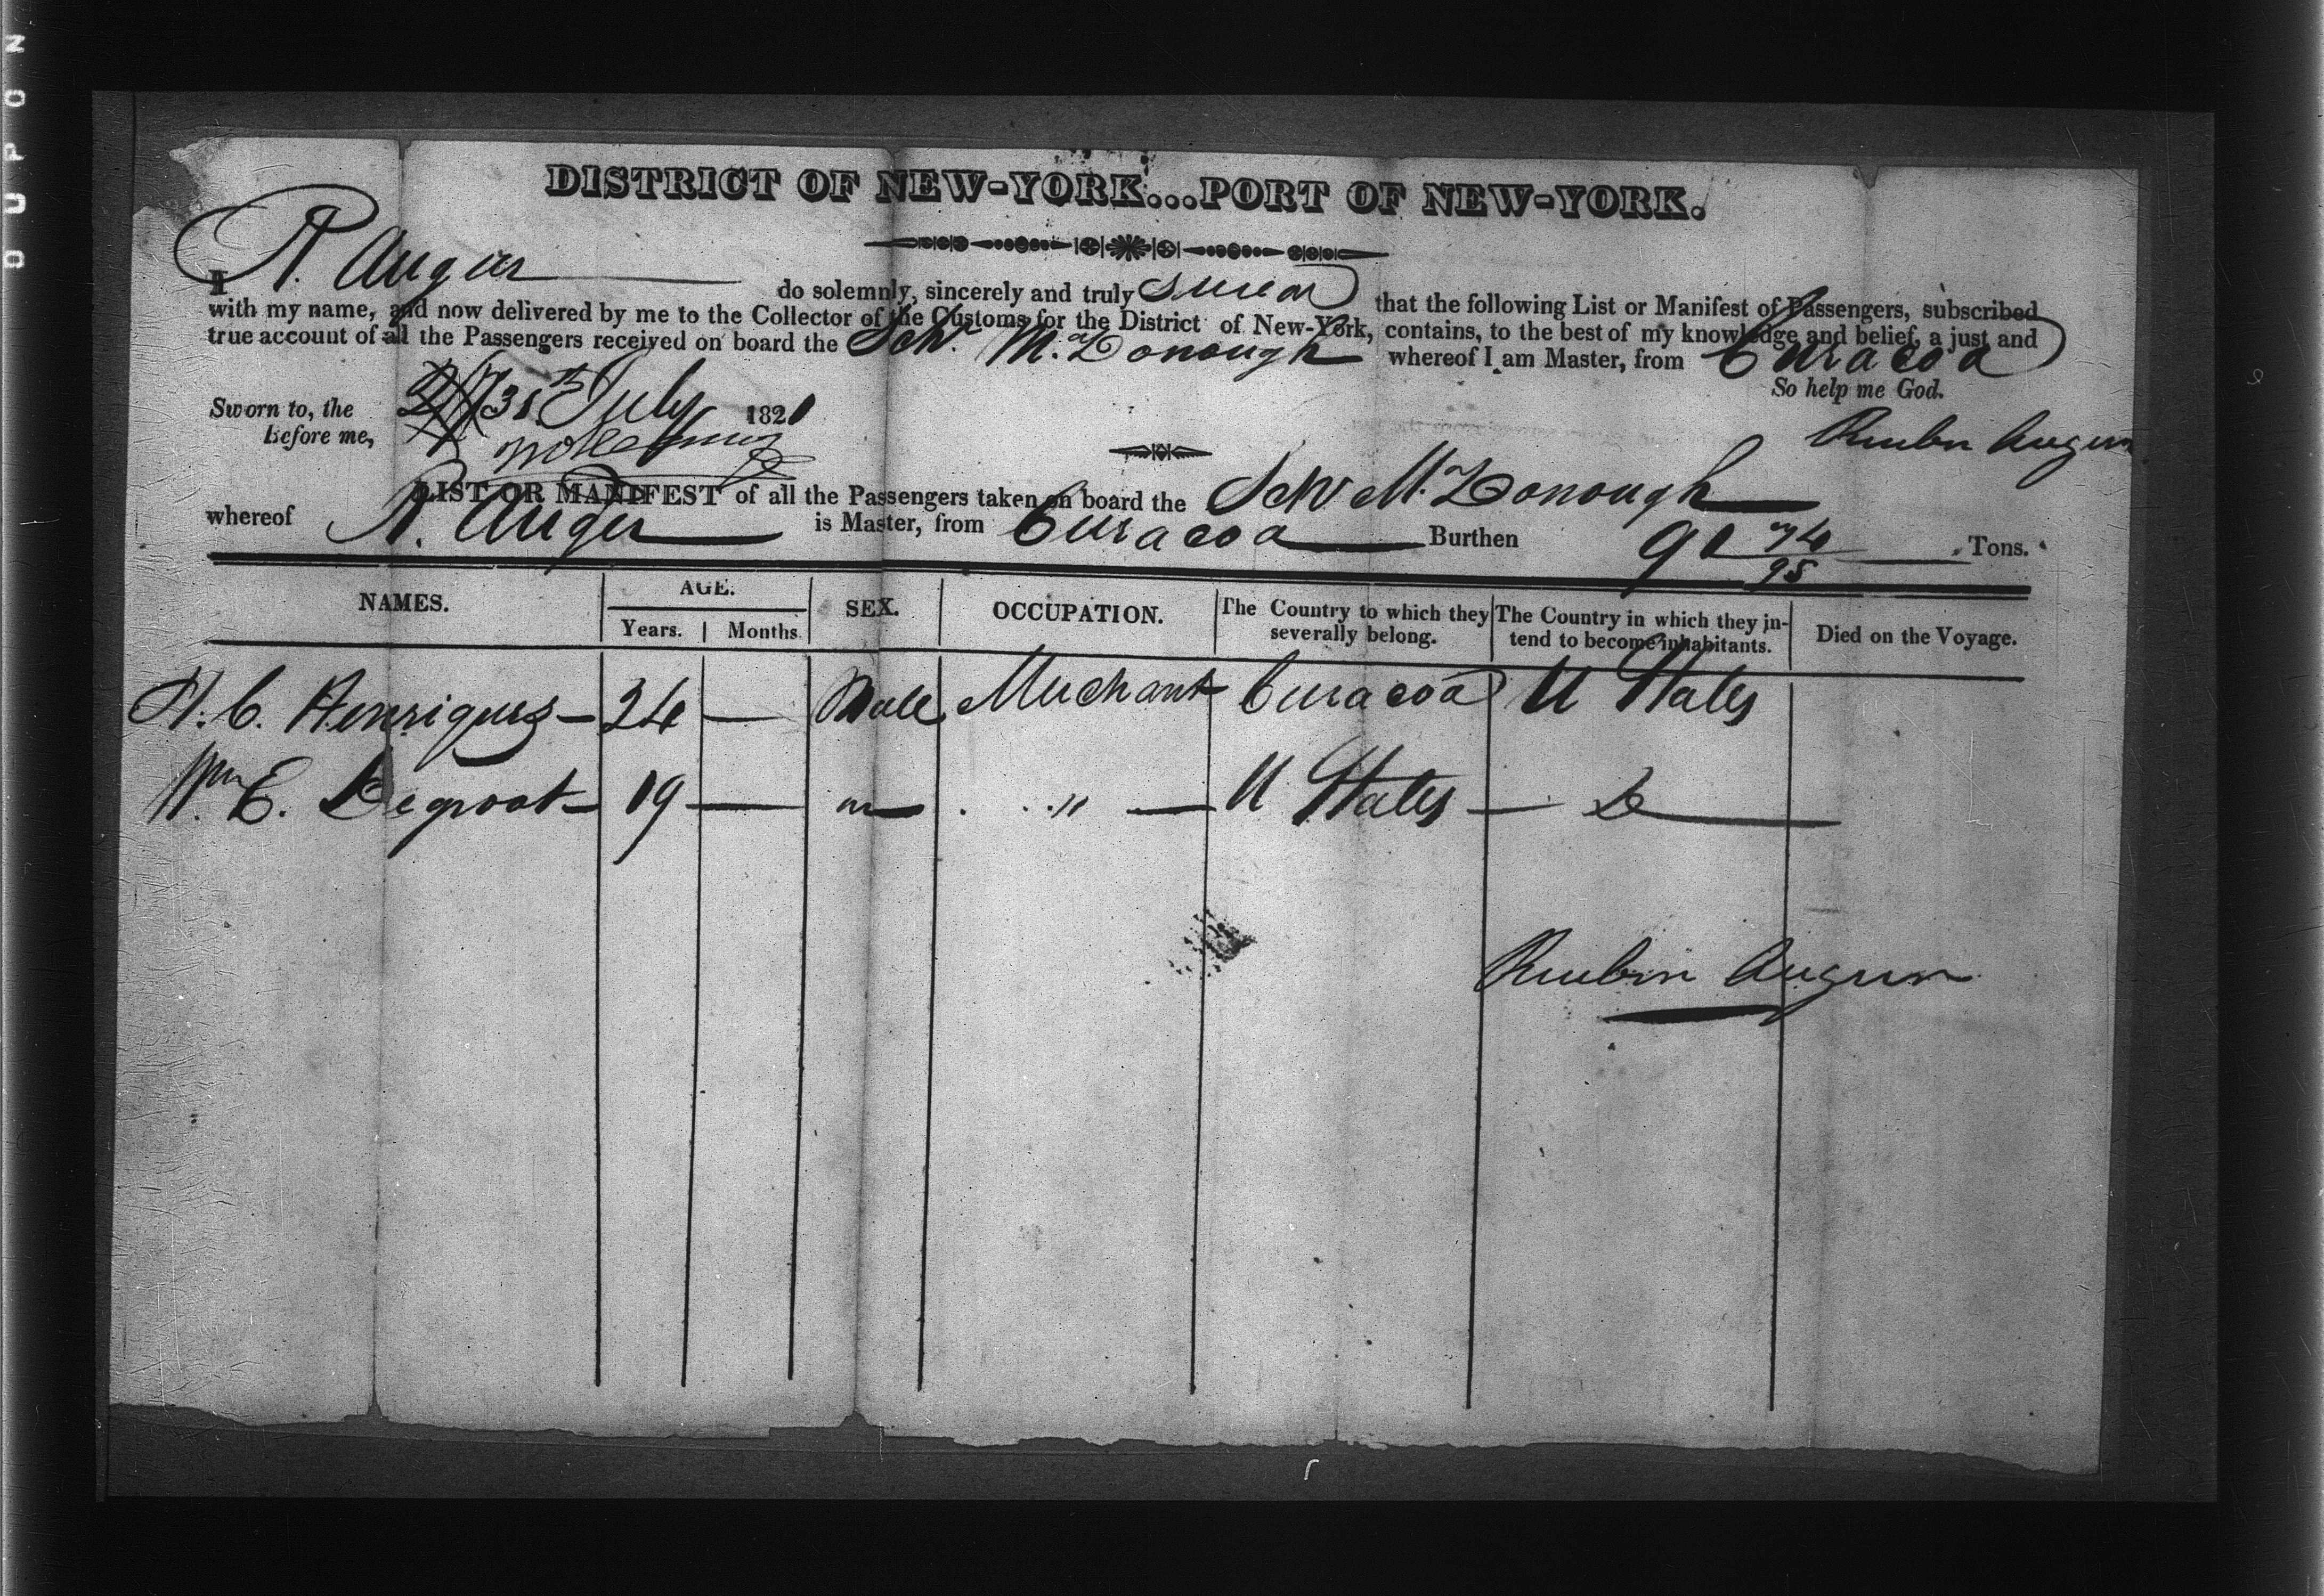 DUPON
DISTRICT OF NEW-YORK...PORT OF NEW-YORK.
I R. Auger do solemnly, sincerely and truly swear that the following List or Manifest of Passengers, subscribed
with my name, and now delivered by me to the Collector of the Customs for the District of New-York, contains, to the best of my knowledge and belief, a just and
true account of all the Passengers received on board the Schr. McDonough whereof I am Master, from Curacoa
So help me God.
Sworn to, the 31st July 1821
before me,
Reuben Augur
LIST OR MANIFEST of all the Passengers taken on board the Schr McDonough
whereof R. Auger is Master, from Curacoa Burthen 91 74/95 Tons.
NAMES. AGE. Years. Months. SEX. OCCUPATION. The Country to which they severally belong. The Country in which they intend to become inhabitants. Died on the Voyage.
H. C. Henriques — 24 — Male Merchant Curacoa U States
Wm E. Degroot — 19 — m " — U States — Do
Reuben Augur